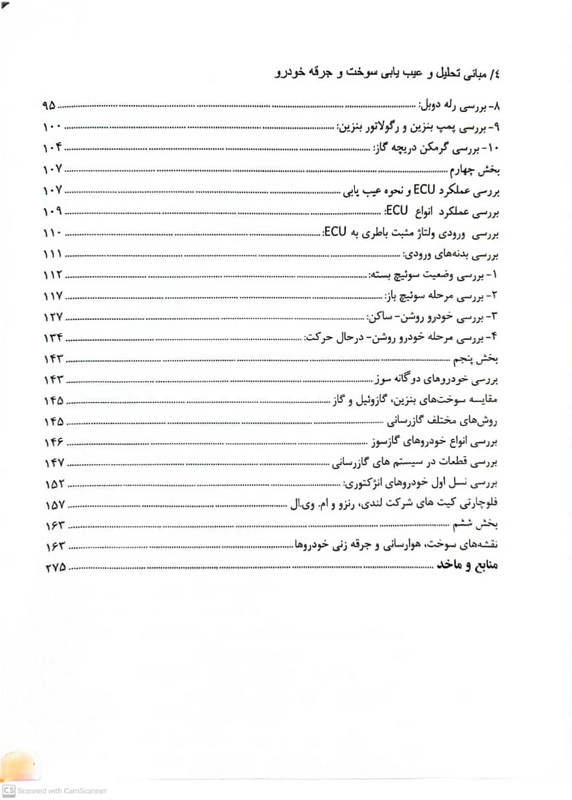 ۴/ مبانی تحلیل و عیب یابی سوخت و جرقه خودرو
۸- بررسی رله دوبل: ۹۵
۹- بررسی پمپ بنزین و رگولاتور بنزین: ۱۰۰
۱۰- بررسی گرمکن دریچه گاز: ۱۰۴
بخش چهارم ۱۰۷
بررسی عملکرد ECU و نحوه عیب یابی ۱۰۷
بررسی عملکرد انواع ECU: ۱۰۹
بررسی ورودی ولتاژ مثبت باطری به ECU: ۱۱۰
بررسی بدنه‌های ورودی: ۱۱۱
۱- بررسی وضعیت سوئیچ بسته: ۱۱۲
۲- بررسی مرحله سوئیچ باز: ۱۱۷
۳- بررسی خودرو روشن- ساکن: ۱۲۷
۴- بررسی مرحله خودرو روشن- درحال حرکت: ۱۳۴
بخش پنجم ۱۴۳
بررسی خودروهای دوگانه سوز ۱۴۳
مقایسه سوخت‌های بنزین، گازوئیل و گاز ۱۴۵
روش‌های مختلف گازرسانی ۱۴۵
بررسی انواع خودروهای گازسوز ۱۴۶
بررسی قطعات در سیستم های گازرسانی ۱۴۷
بررسی نسل اول خودروهای انژکتوری: ۱۵۲
فلوچارتی کیت های شرکت لندی، رنزو و ام. وی.ال ۱۵۷
بخش ششم ۱۶۳
نقشه‌های سوخت، هوارسانی و جرقه زنی خودروها ۱۶۳
منابع و ماخد ۲۷۵
CS Scanned with CamScanner